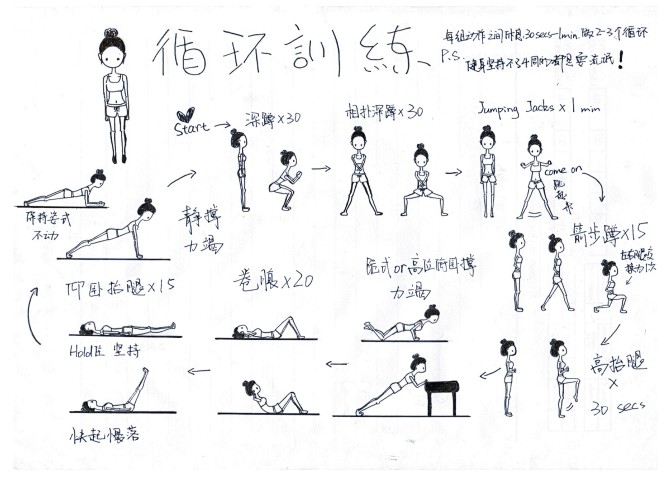 循环训練
每组动作之间休息30secs-1min 做2-3个循环
P.S. 健身坚持不了4周的都是耍流氓!
Start
深蹲×30
相扑深蹲×30
Jumping Jacks × 1 min
come on
跳起来
箭步蹲×15
左右腿交
换为1次
高抬腿
×
30 secs
跪式or高位俯卧撑
力竭
卷腹×20
仰卧抬腿×15
Hold住 坚持
快起慢落
静撑
力竭
保持姿式
不动